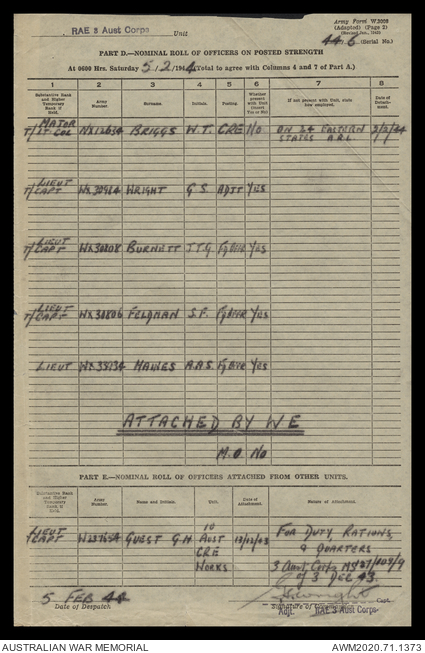 RAE 3 Aust Corps Unit
Army Form W.3008
(Adapted) (Page 2)
44.6 (Serial No.)
PART D.—NOMINAL ROLL OF OFFICERS ON POSTED STRENGTH
At 0600 Hrs. Saturday 5/2/1944 (Total to agree with Columns 4 and 7 of Part A.)
2 3 4 5 6 7 8
Substantive Rank and Higher Temporary Rank if Held. Army Number. Surname. Initials. Posting. Whether present with Unit (insert Yes or No) If not present with Unit, state how employed. Date of Detachment.
MAJOR
T/LT COL BRIGGS W.T. CRE NO ON 24 EASTERN STATES A.R.L. 2/2/44
LIEUT
T/CAPT WRIGHT G S ADJT YES
LIEUT
T/CAPT WX30808 BURNETT J.T.G. YES
LIEUT
T/CAPT WX30806 FELDMAN S.F. YES
LIEUT HAWES A.A.S. YES
ATTACHED BY W E
M.O. NO
PART E.—NOMINAL ROLL OF OFFICERS ATTACHED FROM OTHER UNITS.
Substantive Rank and Higher Temporary Rank if Held. Army Number. Name and Initials. Unit. Date of Attachment. Nature of Attachment.
LIEUT
T/CAPT GUEST G.H. 10 AUST CRE WORKS 13/12/43 FOR DUTY, RATIONS, & QUARTERS
3 Aust Corps
of 3 DEC 43.
5 FEB 44
Date of Despatch
Capt.
Adjt. RAE 3 Aust Corps
AUSTRALIAN WAR MEMORIAL
AWM2020.71.1373